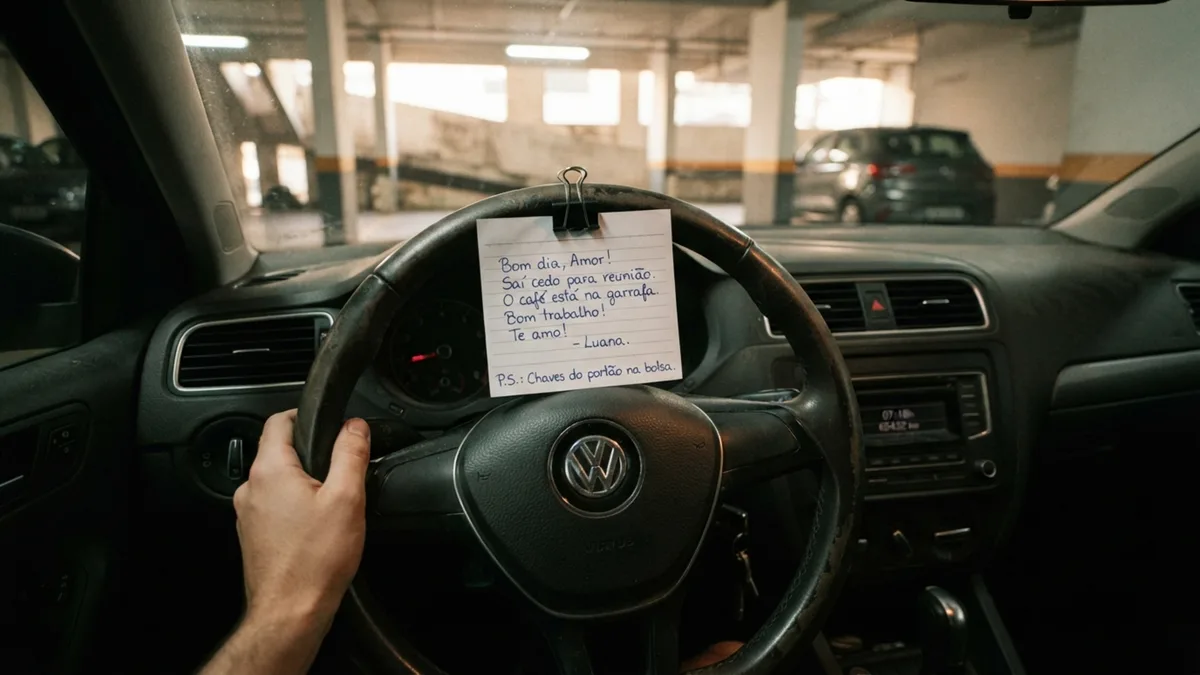 Bom dia, Amor!
Saí cedo para reunião.
O café está na garrafa.
Bom trabalho!
Te amo!
- Luana.
P.S.: Chaves do portão na bolsa.
VW